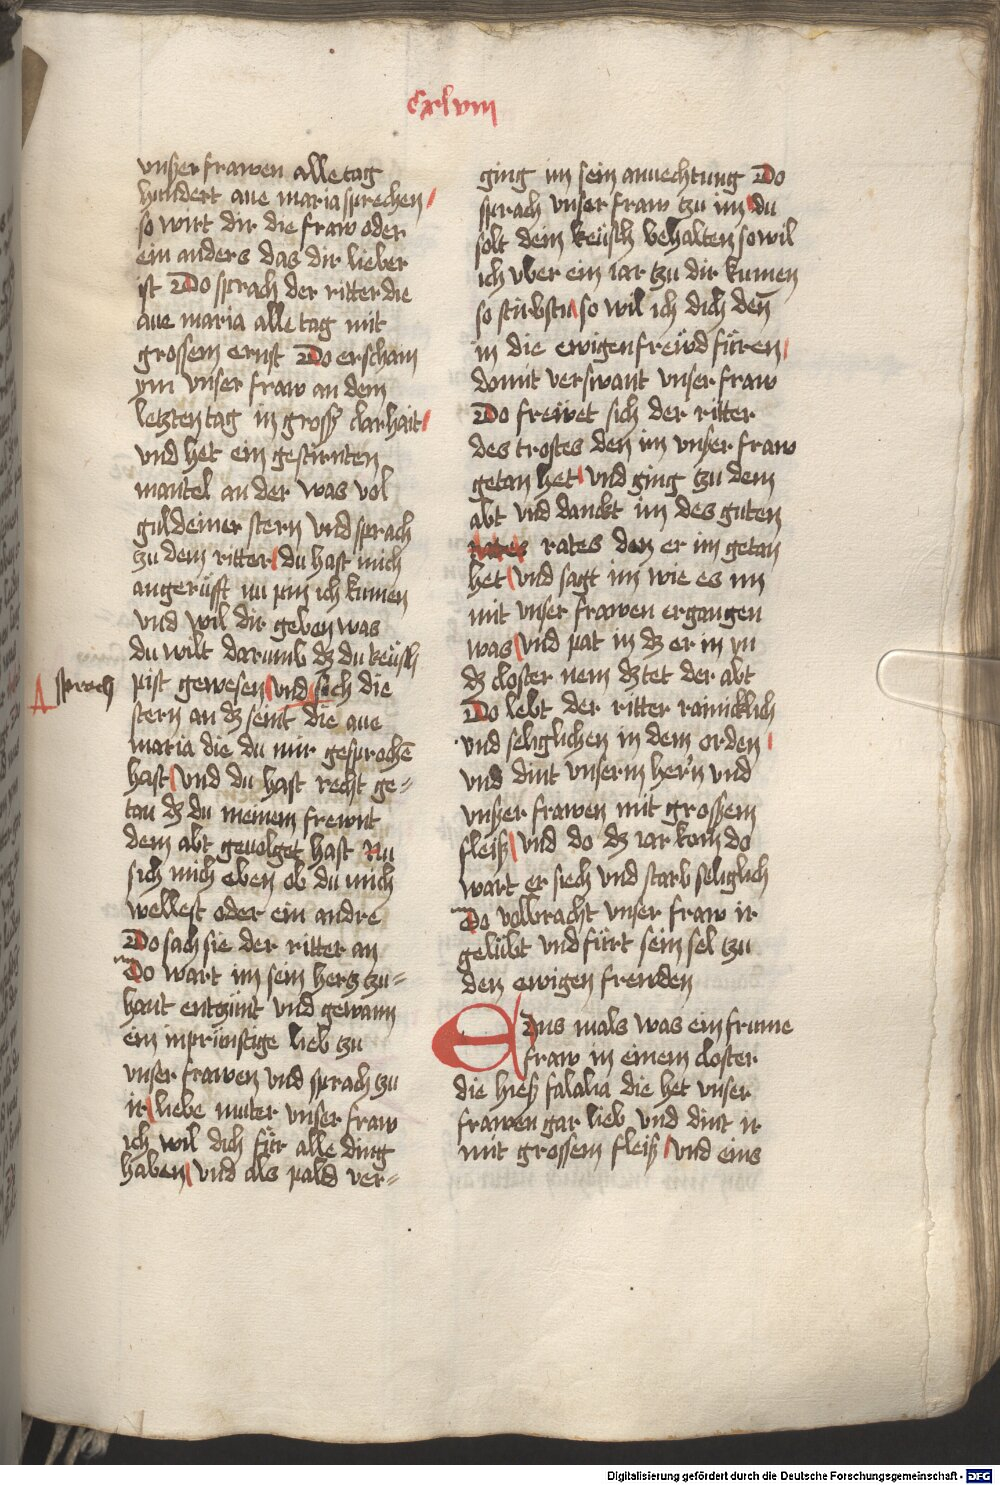 Cxlviii
vnßer frawen alle tag
hundert aue maria sprechen /
so wirt dir die fraw oder
ein anders das dir lieber
ist Do sprach der ritter die
aue maria alle tag mit
grossem ernst Do erscham
ym vnser fraw an dem
letzten tag in grosß clarhait /
vnd het ein gestirnten
mantel an der was vol
guldeiner stern vnd sprach
zu dem ritter / du hast mich
angerüfft nu pin ich kumen
vnd wil dir geben was
du wilt darumb dz du keüsch
sprach
pist gewesen / vnd sich die
stern an dz seint die aue
maria die du mir gesprochē
hast / vnd du hast recht ge=
tan dz du meinem frewnt
dem abt geuolget hast Nu
sich mich eben ob du mich
wellest oder ein andre
Do sach sie der ritter an
Do wart im sein hertz zu=
hant entzünt vnd gewann
ein inprünstige lieb tzu
vnser frawen vnd sprach tzu
ir / liebe muter vnser fraw
ich wil dich für alle ding
haben / vnd als pald ver=
ging im sein anuechtung Do
sprach vnser fraw tzu im / du
solt dein keüsch behalten so wil
ich vber ein iar tzu dir kumen
so stirbstu / so wil ich dich den̄
in die ewigen freẅd füren /
domit verswant vnser fraw
Do freẅet sich der ritter
des trostes den im vnser fraw
getan het / vnd ging tzu dem
abt vnd danckt im des guten
rates den er im getan
het / vnd sagt im wie es im
mit vnser frawen ergangen
was / vnd pat in dz er in yn
dz closter nem dz tet der abt
Do lebt der ritter rainicklich
vnd seliglichen in dem orden /
vnd dint vnserm hern vnd
vnßer frawen mit grossem
fleiß / vnd do dz iar kom do
wart er siech vnd starb seliglich
Do volbracht vnser fraw ir
gelübt vnd fürt sein sel tzu
den ewigen freuden
Eins mals was ein frume
fraw in einem closter
die hieß falalia die het vnser
frawen gar lieb vnd dint ir
mit grossem fleiß / vnd eins
Digitalisierung gefördert durch die Deutsche Forschungsgemeinschaft - DFG